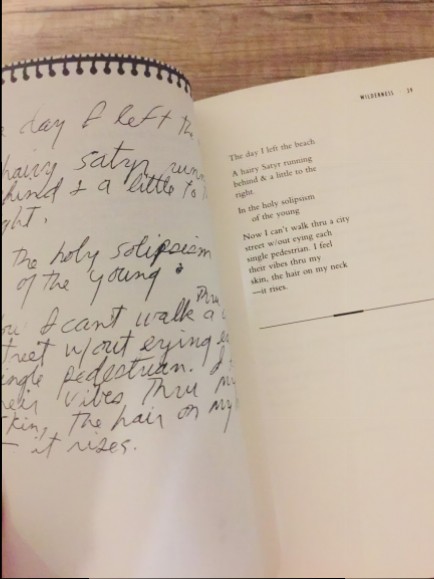 day I left the
hairy satyr runn
hind & a little to
ght.
The holy solipsism
of the young
Thru
I cant walk a
treet w/out eying e
ingle pedestrian. I
heir vibes Thru my
skin, the hair on my
– it rises.
WILDERNESS 39
The day I left the beach
A hairy Satyr running
behind & a little to the
right.
In the holy solipsism
of the young
Now I can't walk thru a city
street w/out eying each
single pedestrian. I feel
their vibes thru my
skin, the hair on my neck
—it rises.